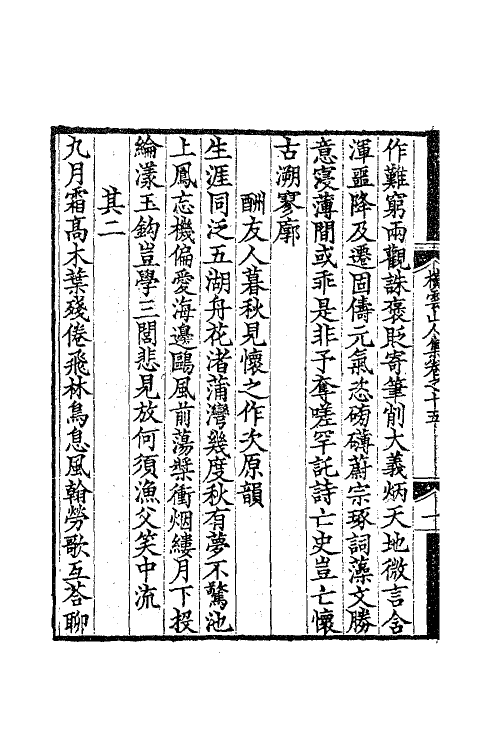 作難窮兩觀誅褒貶寄筆削大義炳天地微言含
渾噩降及遷固儔元氣恣磅礴蔚宗琢詞藻文勝
意寖薄間或乖是非予奪嗟罕託詩亡史豈亡懷
古溯寥廓
酬友人暮秋見懷之作次原韻
生涯同泛五湖舟花渚蒲灣幾度秋有夢不驚池
上鳳忘機偏愛海邊鷗風前蕩槳衝烟縷月下投
綸漾玉鈎豈學三閭悲見放何須漁父笑中流
其二
九月霜高木葉殘倦飛林鳥息風翰勞歌互荅聊
橫雲山人集卷之十五
一